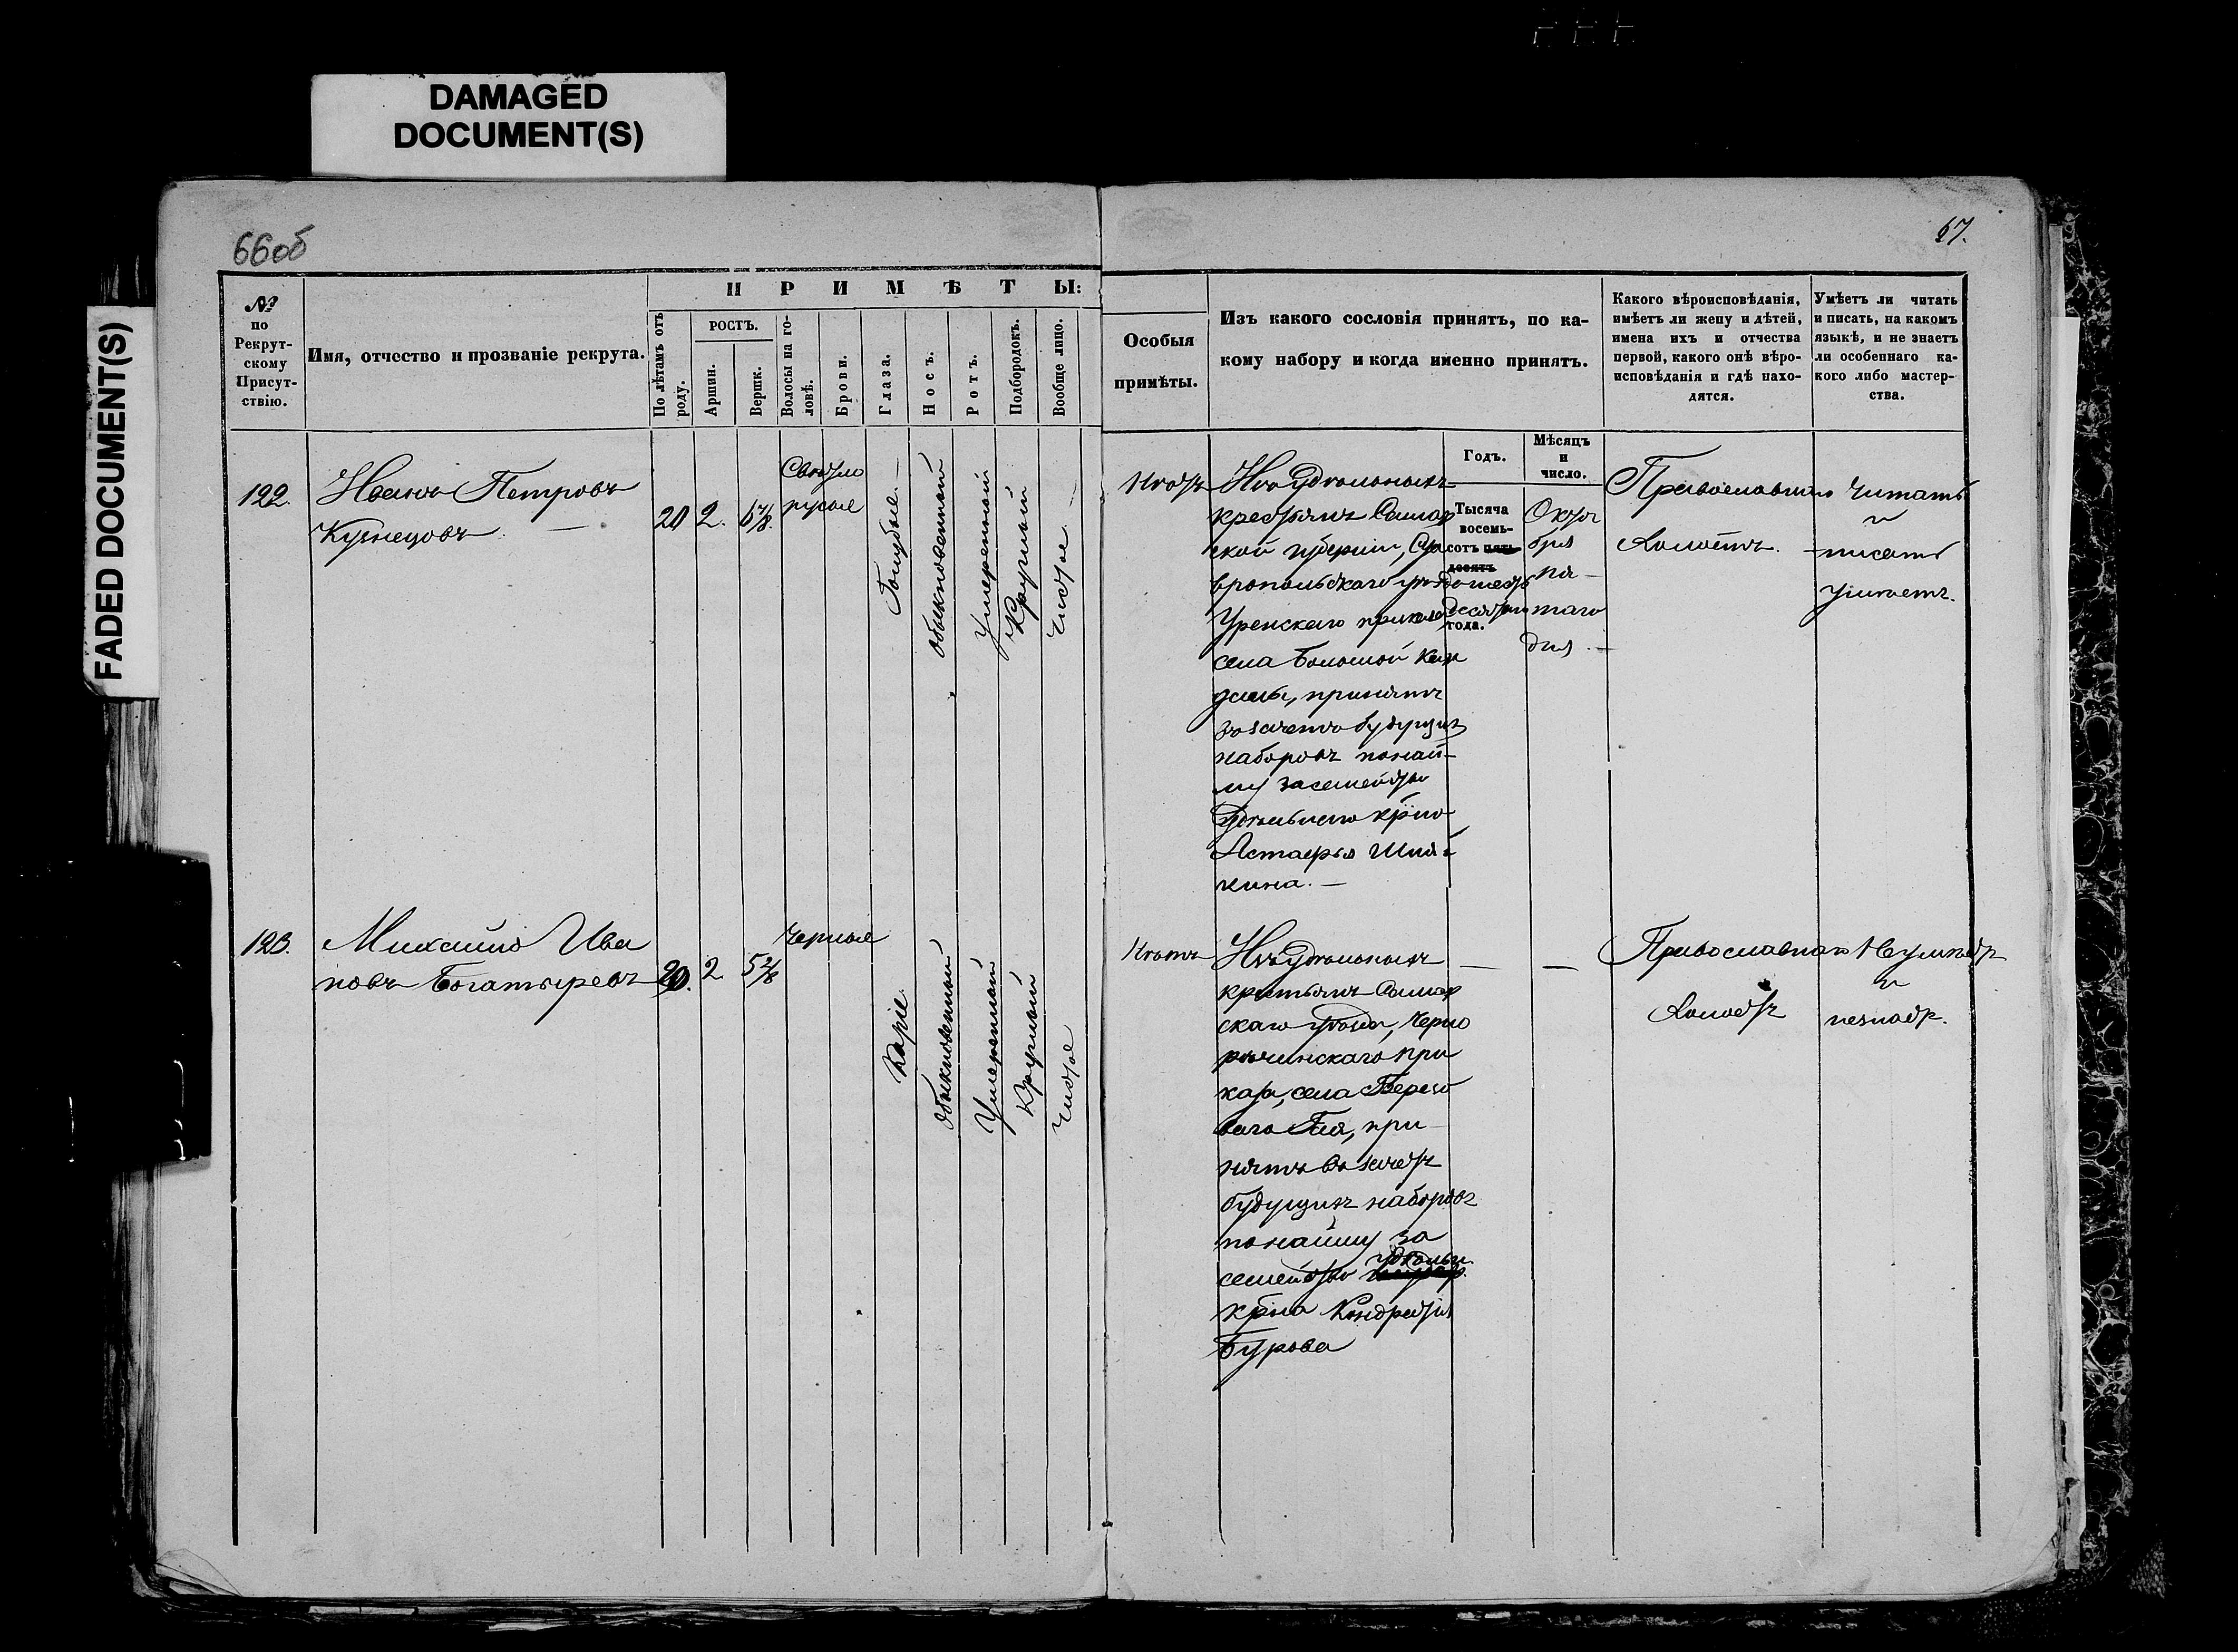 DAMAGED
DOCUMENT(S)
FADED DOCUMENT(S)
66об
67.
№
по
Рекрут-
скому
Присут-
ствію.
Имя, отчество и прозваніе рекрута.
П Р И М Ѣ Т Ы:
По лѣтамъ отъ
роду.
РОСТЪ.
Аршин.
Вершк.
Волосы на го-
ловѣ.
Брови.
Глаза.
Носъ.
Ротъ.
Подбородокъ.
Вообще лицо.
Особыя
примѣты.
Изъ какого сословія принятъ, по ка-
кому набору и когда именно принятъ.
Какого вѣроисповѣданія,
имѣетъ ли жену и дѣтей,
имена ихъ и отчества
первой, какого онѣ вѣро-
исповѣданія и гдѣ нахо-
дятся.
Умѣетъ ли читать
и писать, на какомъ
языкѣ, и не знаетъ
ли особеннаго ка-
кого либо мастер-
ства.
Годъ.
Мѣсяцъ
и
число.
122.
Иванъ Петровъ
Кузнецовъ
20
2.
6 4/8.
Свѣтло
русые
Голубые
Обыкновенный
Умеренный
Круглый
Чистое
Нѣтъ
Изъ удѣльныхъ
крестьянъ Самар
ской губерніи, Ста
вропольскаго уѣзда
Уренскаго приказа
села Большой Кан
далы, принятъ
въ зачетъ будущихъ
наборовъ по най-
му за семейство
удѣльнаго кр-на
Астафья Шиш-
кина.
Тысяча
восемь-
сотъ пять-
десятъ
шесть
десятъ
года.
Октя
бря
пя-
таго
дня
Православнаго
Холостъ.
Читать
и
писать
умѣетъ.
123.
Михайло Ива
новъ Богатыревъ
20.
2
5 2/8
Черные
Каріе
Обыкновенный
Умеренный
Круглый
Чистое
Нѣтъ
Изъ удѣльныхъ
крестьянъ Самар
скаго уѣзда, Черно
рѣчинскаго при
каза, села Березо
ваго Гая, при-
нятъ въ зачетъ
будущихъ наборовъ
по найму за
семейство удѣльн.
кр-на Кондратія
Бурова
Православнаго
Холостъ
Неумѣетъ
и
незнаетъ.